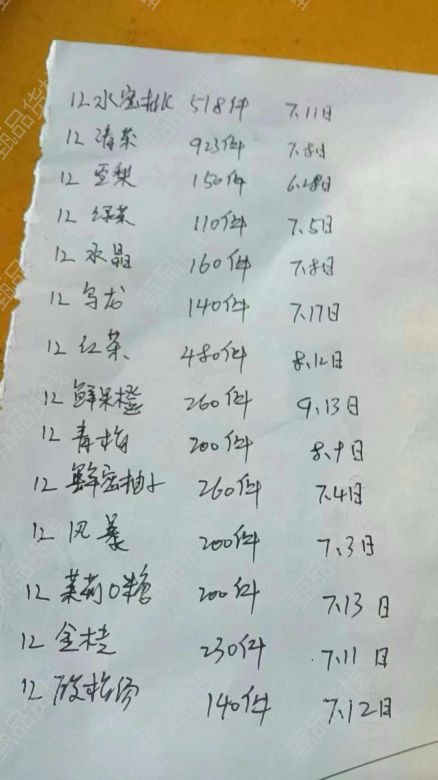 12 水蜜桃 518件 7.11日
12 清茶 923件 7.8日
12 雪梨 150件 6.28日
12 绿茶 110件 7.5日
12 水晶 160件 7.8日
12 乌龙 140件 7.17日
12 红茶 480件 8.12日
12 鲜果橙 260件 9.13日
12 青梅 200件 8.9日
12 鲜蜜柚 260件 7.4日
12 风暴 200件 7.3日
12 茉莉0糖 200件 7.13日
12 金桔 230件 7.11日
12 酸梅汤 140件 7.12日